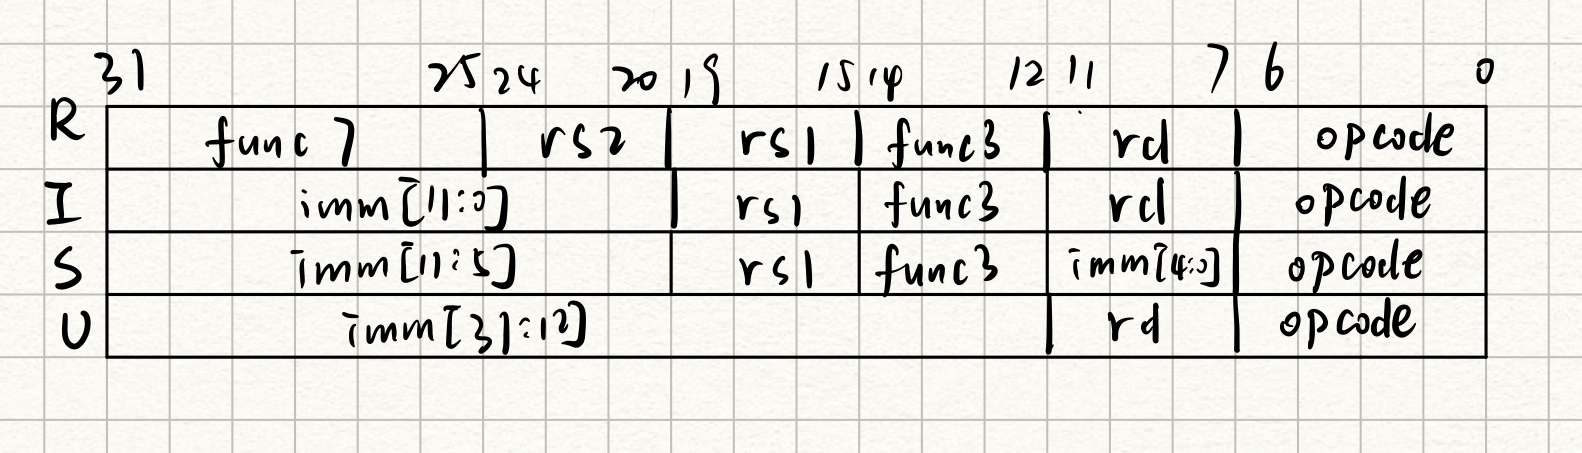 31 25 24 20 19 15 14 12 11 7 6 0
R func7 rs2 rs1 func3 rd opcode
I imm[11:0] rs1 func3 rd opcode
S imm[11:5] rs1 func3 imm[4:0] opcode
U imm[31:12] rd opcode